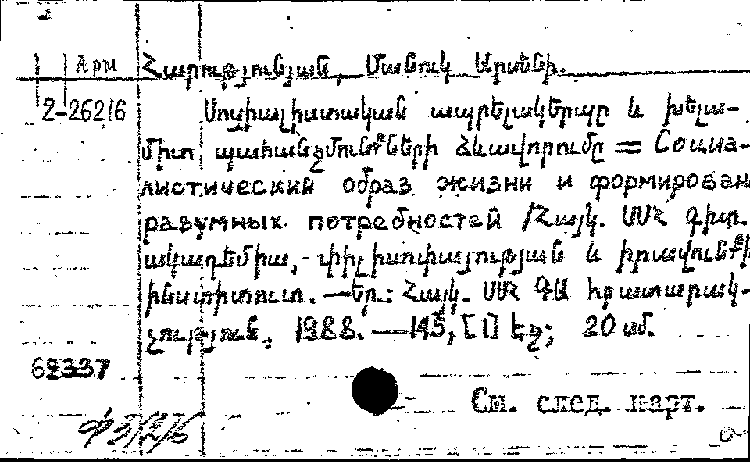 Арм Հարությունյան, Մանուկ Արսենի.
2-26216 Սոցիալիստական ապրելակերպը և խելա-
միտ պահանջմունքների ձևավորումը = Социа-
листический образ жизни и формирован
разумных потребностей /Հայկ. ՍՍՀ գիտ.
ակադեմիա, փիլիսոփայության և իրավունքի
ինստիտուտ. —Եր.: Հայկ. ՍՍՀ ԳԱ հրատարակ-
չություն, 1988. —145, [1] էջ; 20 սմ.
69337
См. след. карт.